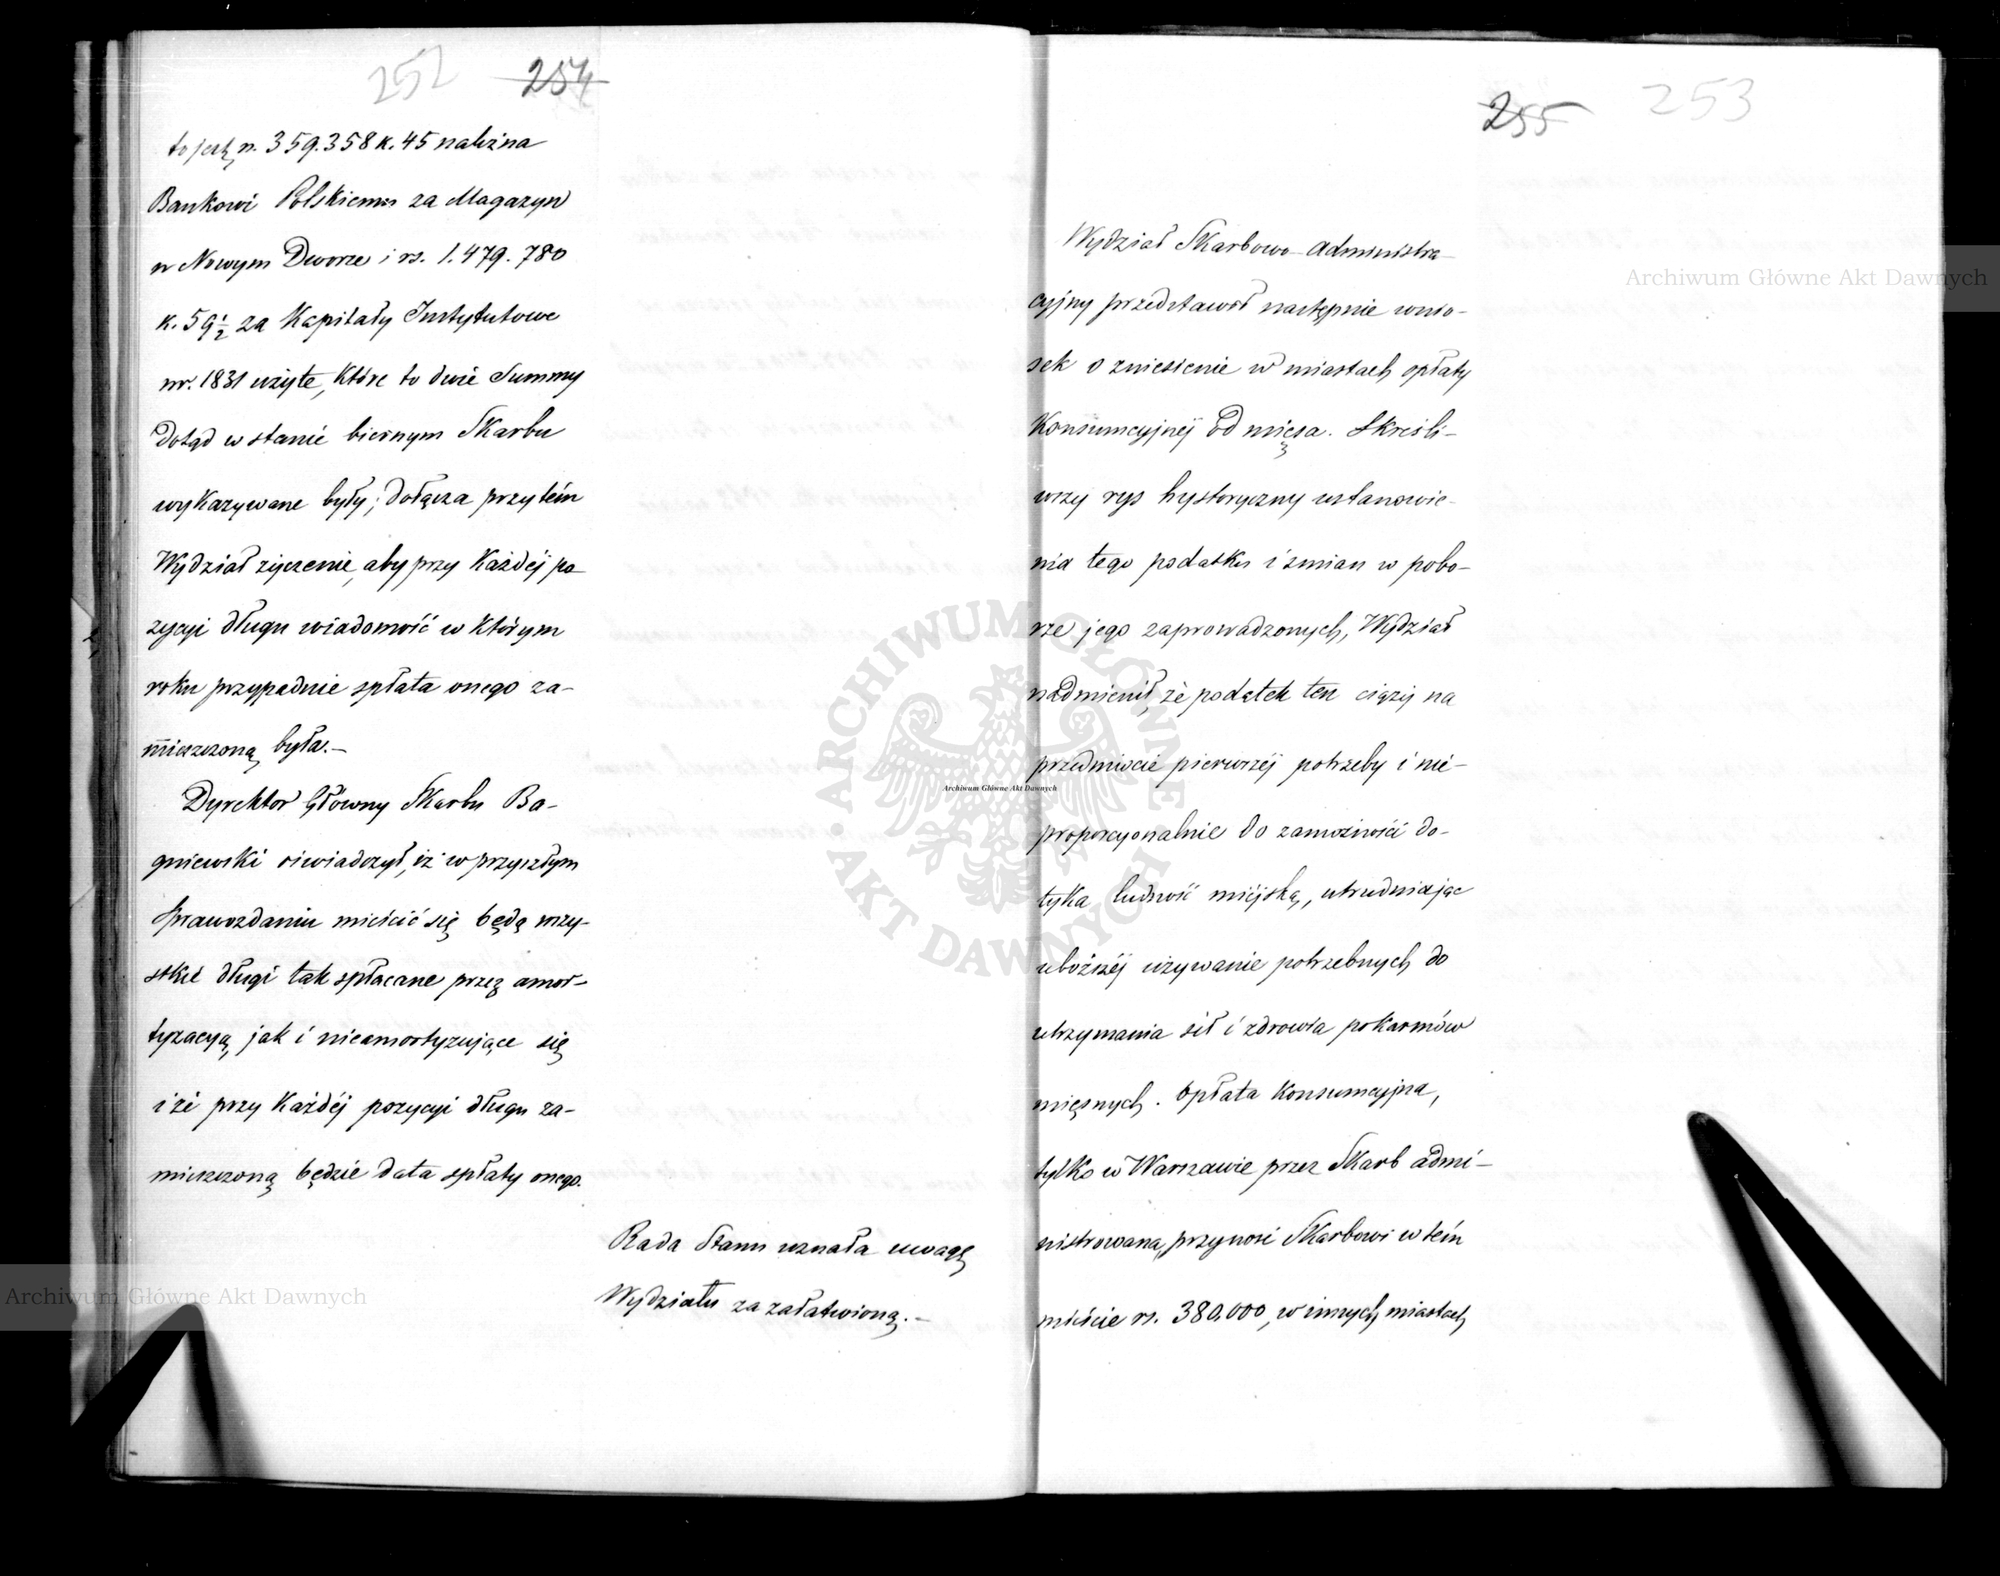 252 254
to jest rs. 359.358 k. 45 należna
Bankowi Polskiemu za Magazyn
w Nowym Dworze i rs. 1.479.780
k. 59½ za Kapitały Instytutowe
w r. 1831 użyte, które to dwie Summy
dotąd w stanie biernym Skarbu
wykazywane były; dołącza przytém
Wydział życzenie, aby przy każdéj po-
zycyi długu wiadomość w którym
roku przypadnie spłata onego za-
mieszczoną była.–
Dyrektor Główny Skarbu Ba-
gniewski oświadczył, iż w przyszłym
Sprawozdaniu mieścić się będą wszy-
stkie długi tak spłacane przez amor-
tyzacyą, jak i nieamortyzujące się
i że przy każdéj pozycyi długu za-
mieszczoną będzie data spłaty onego.
Rada Stanu uznała uwagę
Wydziału za załatwioną.–
255 253
Wydział Skarbowo-Administra-
cyjny przedstawił następnie wnio-
sek o zniesienie w miastach opłaty
Konsumcyjnéj od mięsa. Skreśli-
wszy rys hystoryczny ustanowie-
nia tego podatku i zmian w pobo-
rze jego zaprowadzonych, Wydział
nadmienił, że podatek ten ciąży na
przedmiocie pierwszéj potrzeby i nie-
proporcyonalnie do zamożności do-
tyka ludność miéjską, utrudniając
uboższéj używanie potrzebnych do
utrzymania sił i zdrowia pokarmów
mięsnych. Opłata Konsumcyjna,
tylko w Warszawie przez Skarb admi-
nistrowana, przynosi Skarbowi w tém
mieście rs. 380.000, w innych miastach
Archiwum Główne Akt Dawnych
Archiwum Główne Akt Dawnych
Archiwum Główne Akt Dawnych
ARCHIWUM GŁÓWNE AKT DAWNYCH